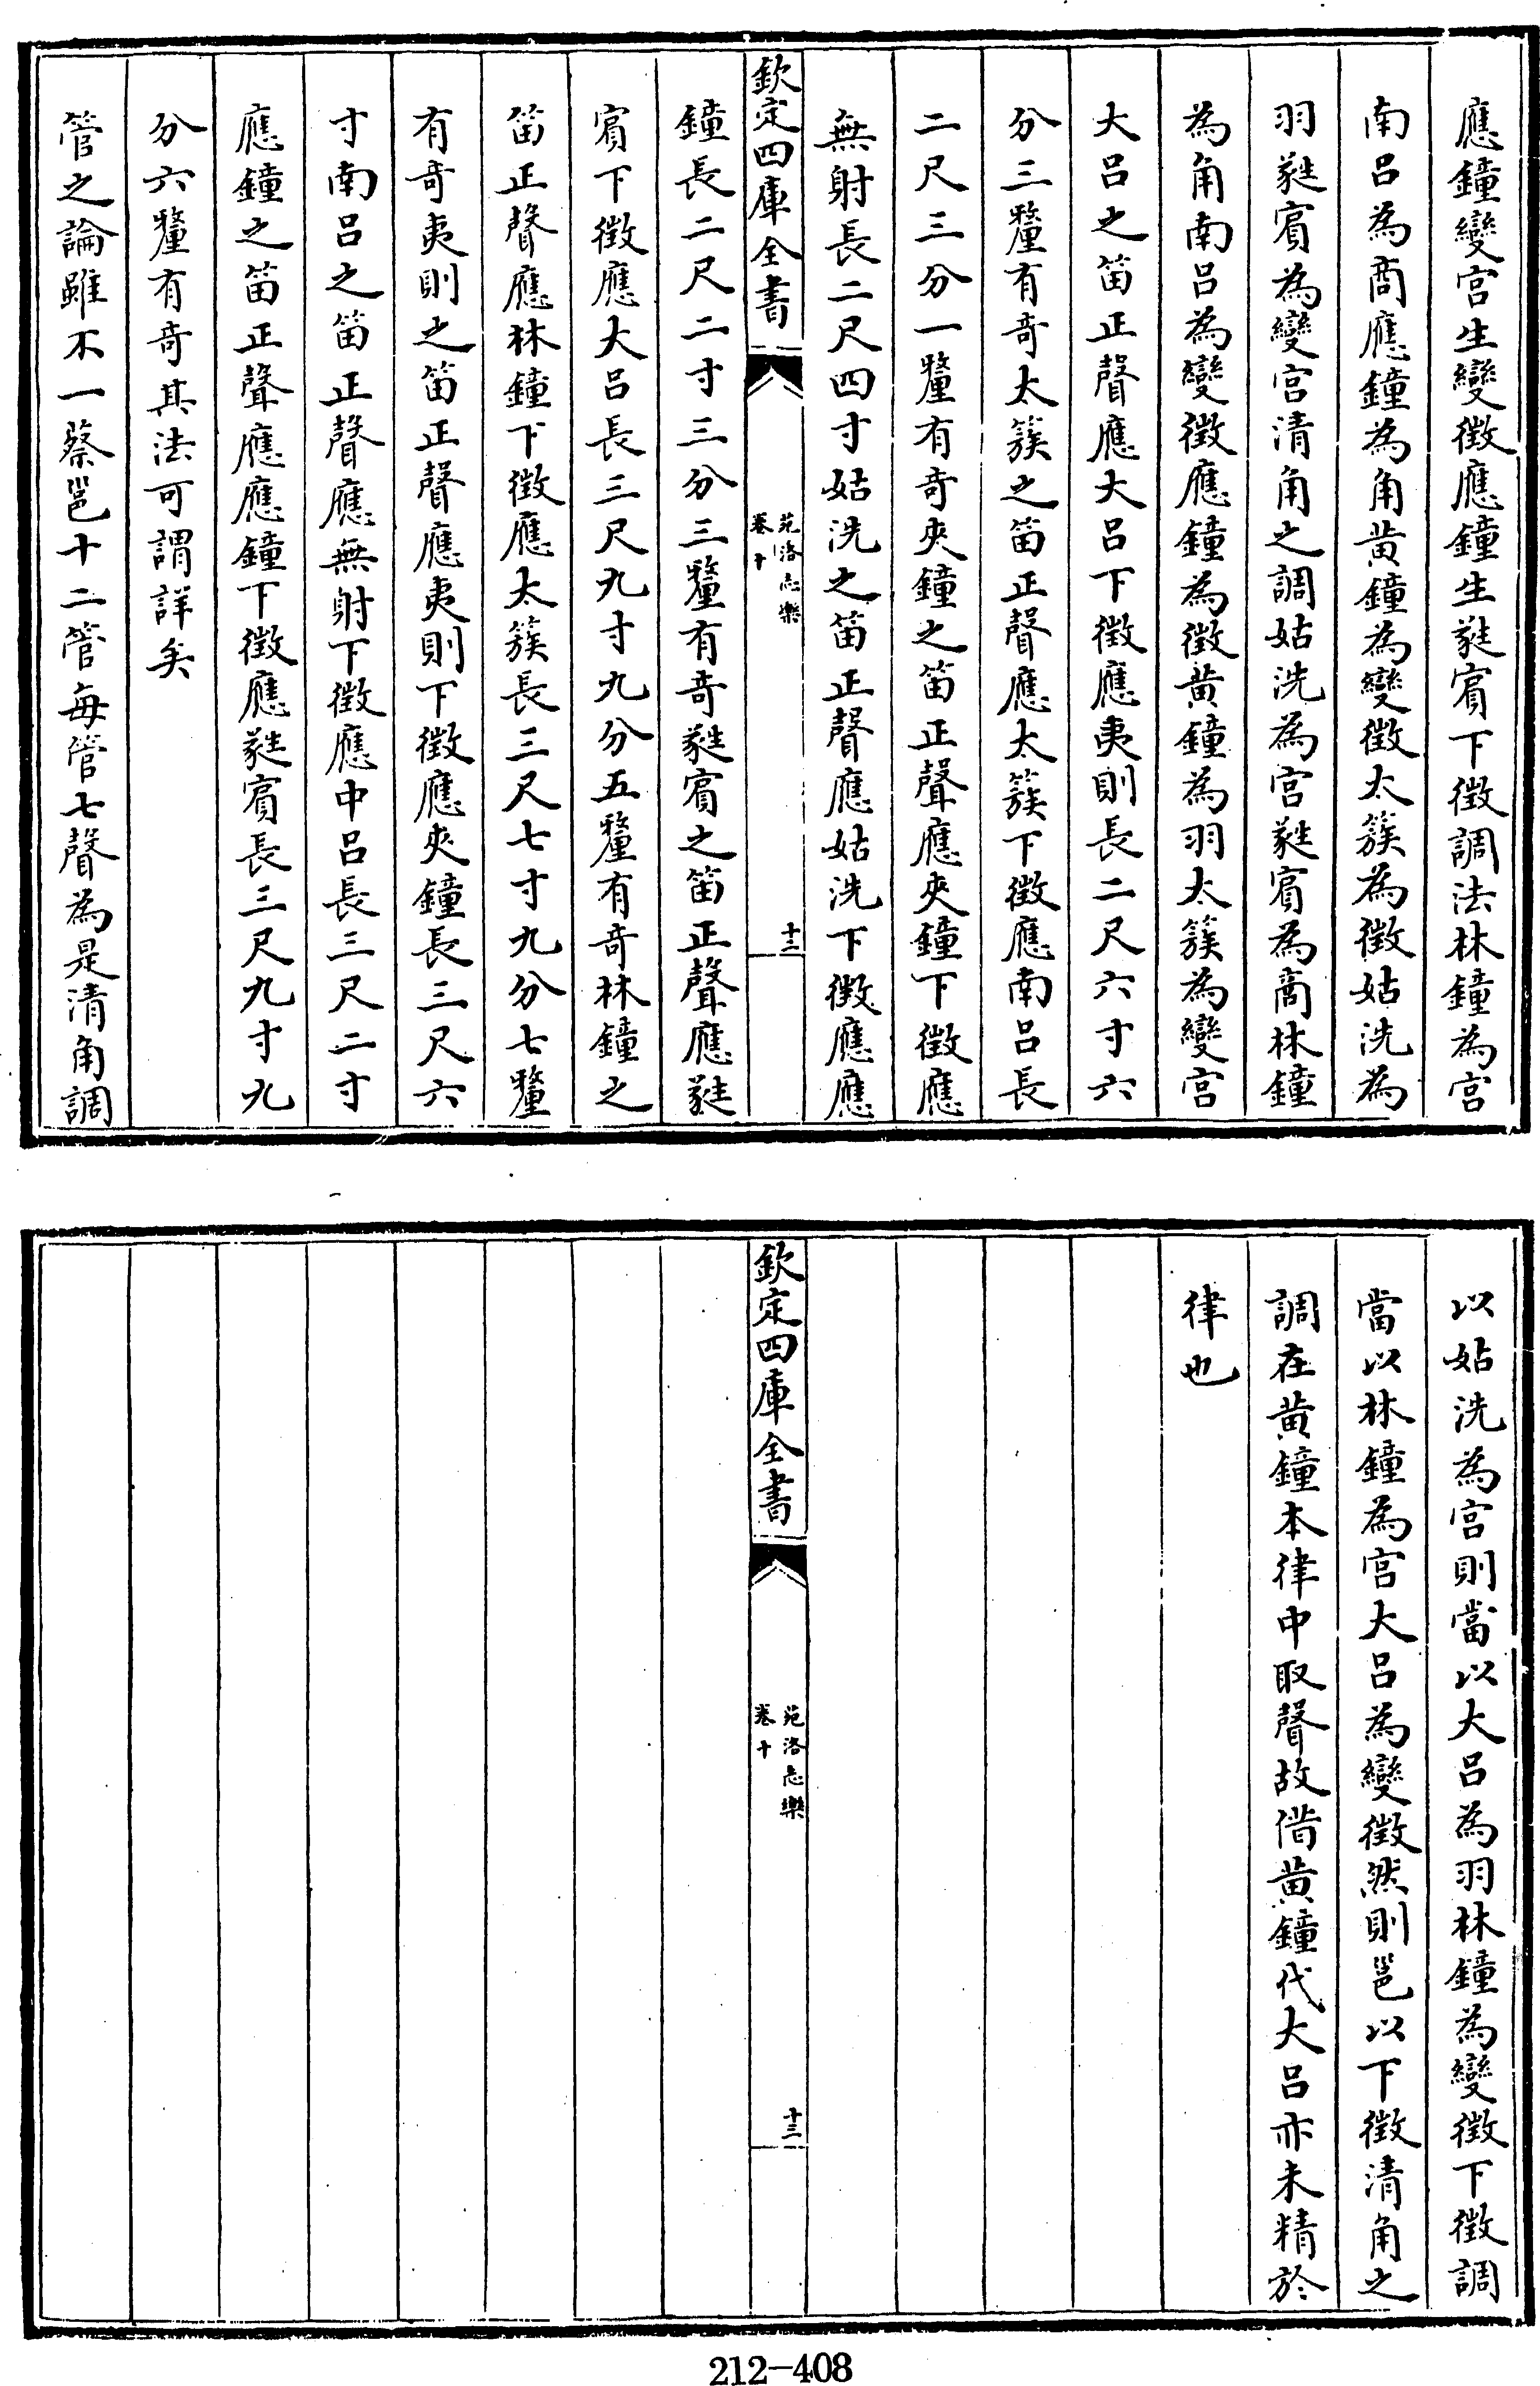 應鐘變宮生變徵應鐘生蕤賓下徵調法林鐘為宮
南呂為商應鐘為角黃鐘為變徵太簇為徵姑洗為
羽蕤賓為變宮清角之調姑洗為宮蕤賓為商林鐘
為角南呂為變徵應鐘為徵黃鐘為羽太簇為變宮
大呂之笛正聲應大呂下徵應夷則長二尺六寸六
分三釐有奇太簇之笛正聲應太簇下徵應南呂長
二尺三分一釐有奇夾鐘之笛正聲應夾鐘下徵應
無射長二尺四寸姑洗之笛正聲應姑洗下徵應應
欽定四庫全書
苑洛志樂
卷十
十三
鐘長二尺二寸三分三釐有奇蕤賓之笛正聲應蕤
賓下徵應大呂長三尺九寸九分五釐有奇林鐘之
笛正聲應林鐘下徵應太簇長三尺七寸九分七釐
有奇夷則之笛正聲應夷則下徵應夾鐘長三尺六
寸南呂之笛正聲應無射下徵應中呂長三尺二寸
應鐘之笛正聲應應鐘下徵應蕤賓長三尺九寸九
分六釐有奇其法可謂詳矣
管之論雖不一蔡邕十二管每管七聲為是清角調
以姑洗為宮則當以大呂為羽林鐘為變徵下徵調
當以林鐘為宮大呂為變徵然則邕以下徵清角之
調在黃鐘本律中取聲故借黃鐘代大呂亦未精於
律也
欽定四庫全書
苑洛志樂
卷十
十三
212-408